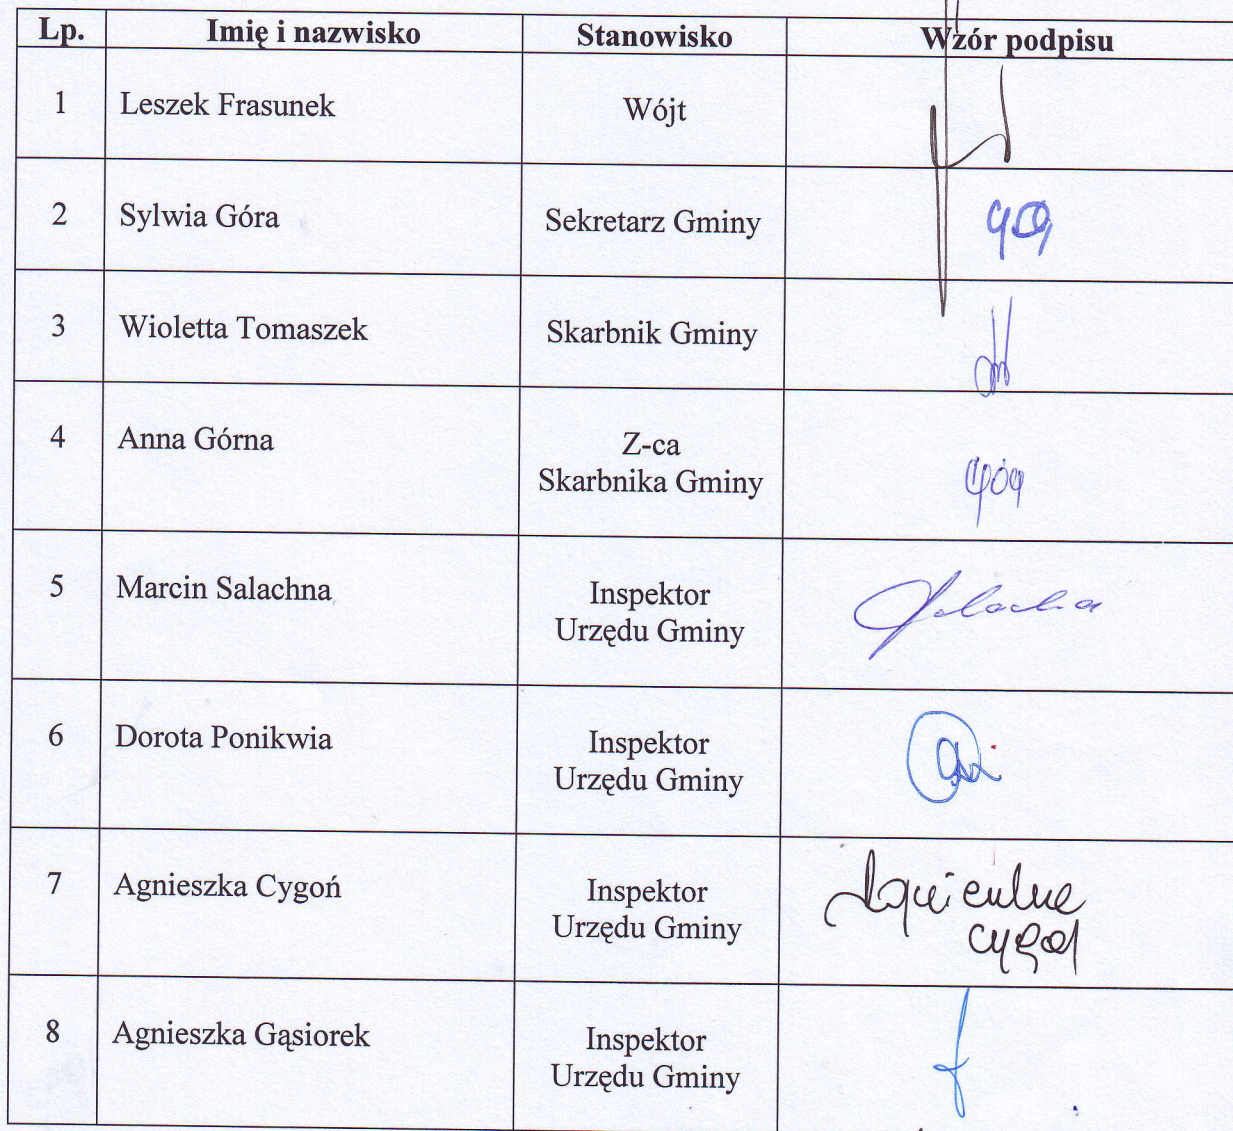 Lp. Imię i nazwisko Stanowisko Wzór podpisu
1 Leszek Frasunek Wójt
2 Sylwia Góra Sekretarz Gminy
3 Wioletta Tomaszek Skarbnik Gminy
4 Anna Górna Z-ca
Skarbnika Gminy
5 Marcin Salachna Inspektor
Urzędu Gminy
6 Dorota Ponikwia Inspektor
Urzędu Gminy
7 Agnieszka Cygoń Inspektor
Urzędu Gminy
8 Agnieszka Gąsiorek Inspektor
Urzędu Gminy